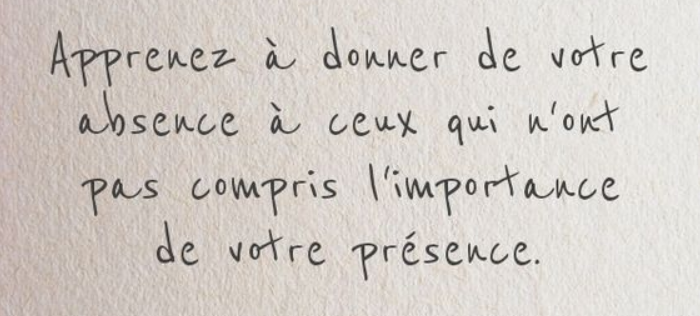 Apprenez à donner de votre
absence à ceux qui n'ont
pas compris l'importance
de votre présence.